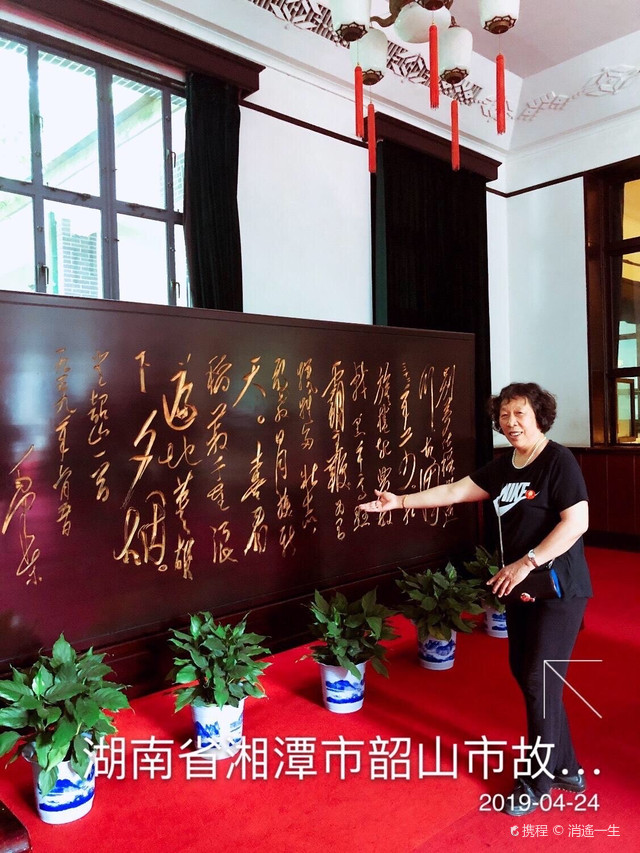 别梦依稀咒逝
川故园
三十二年前红
旗卷起农奴
戟黑手高悬
霸主鞭为有
牺牲多壮志
敢教日月换新
天。喜看
稻菽千重浪
遍地英雄
下夕烟。
到韶山一首
一九五九年六月
毛泽东
NIKE
湖南省湘潭市韶山市故...
2019-04-24
携程 © 消遙一生